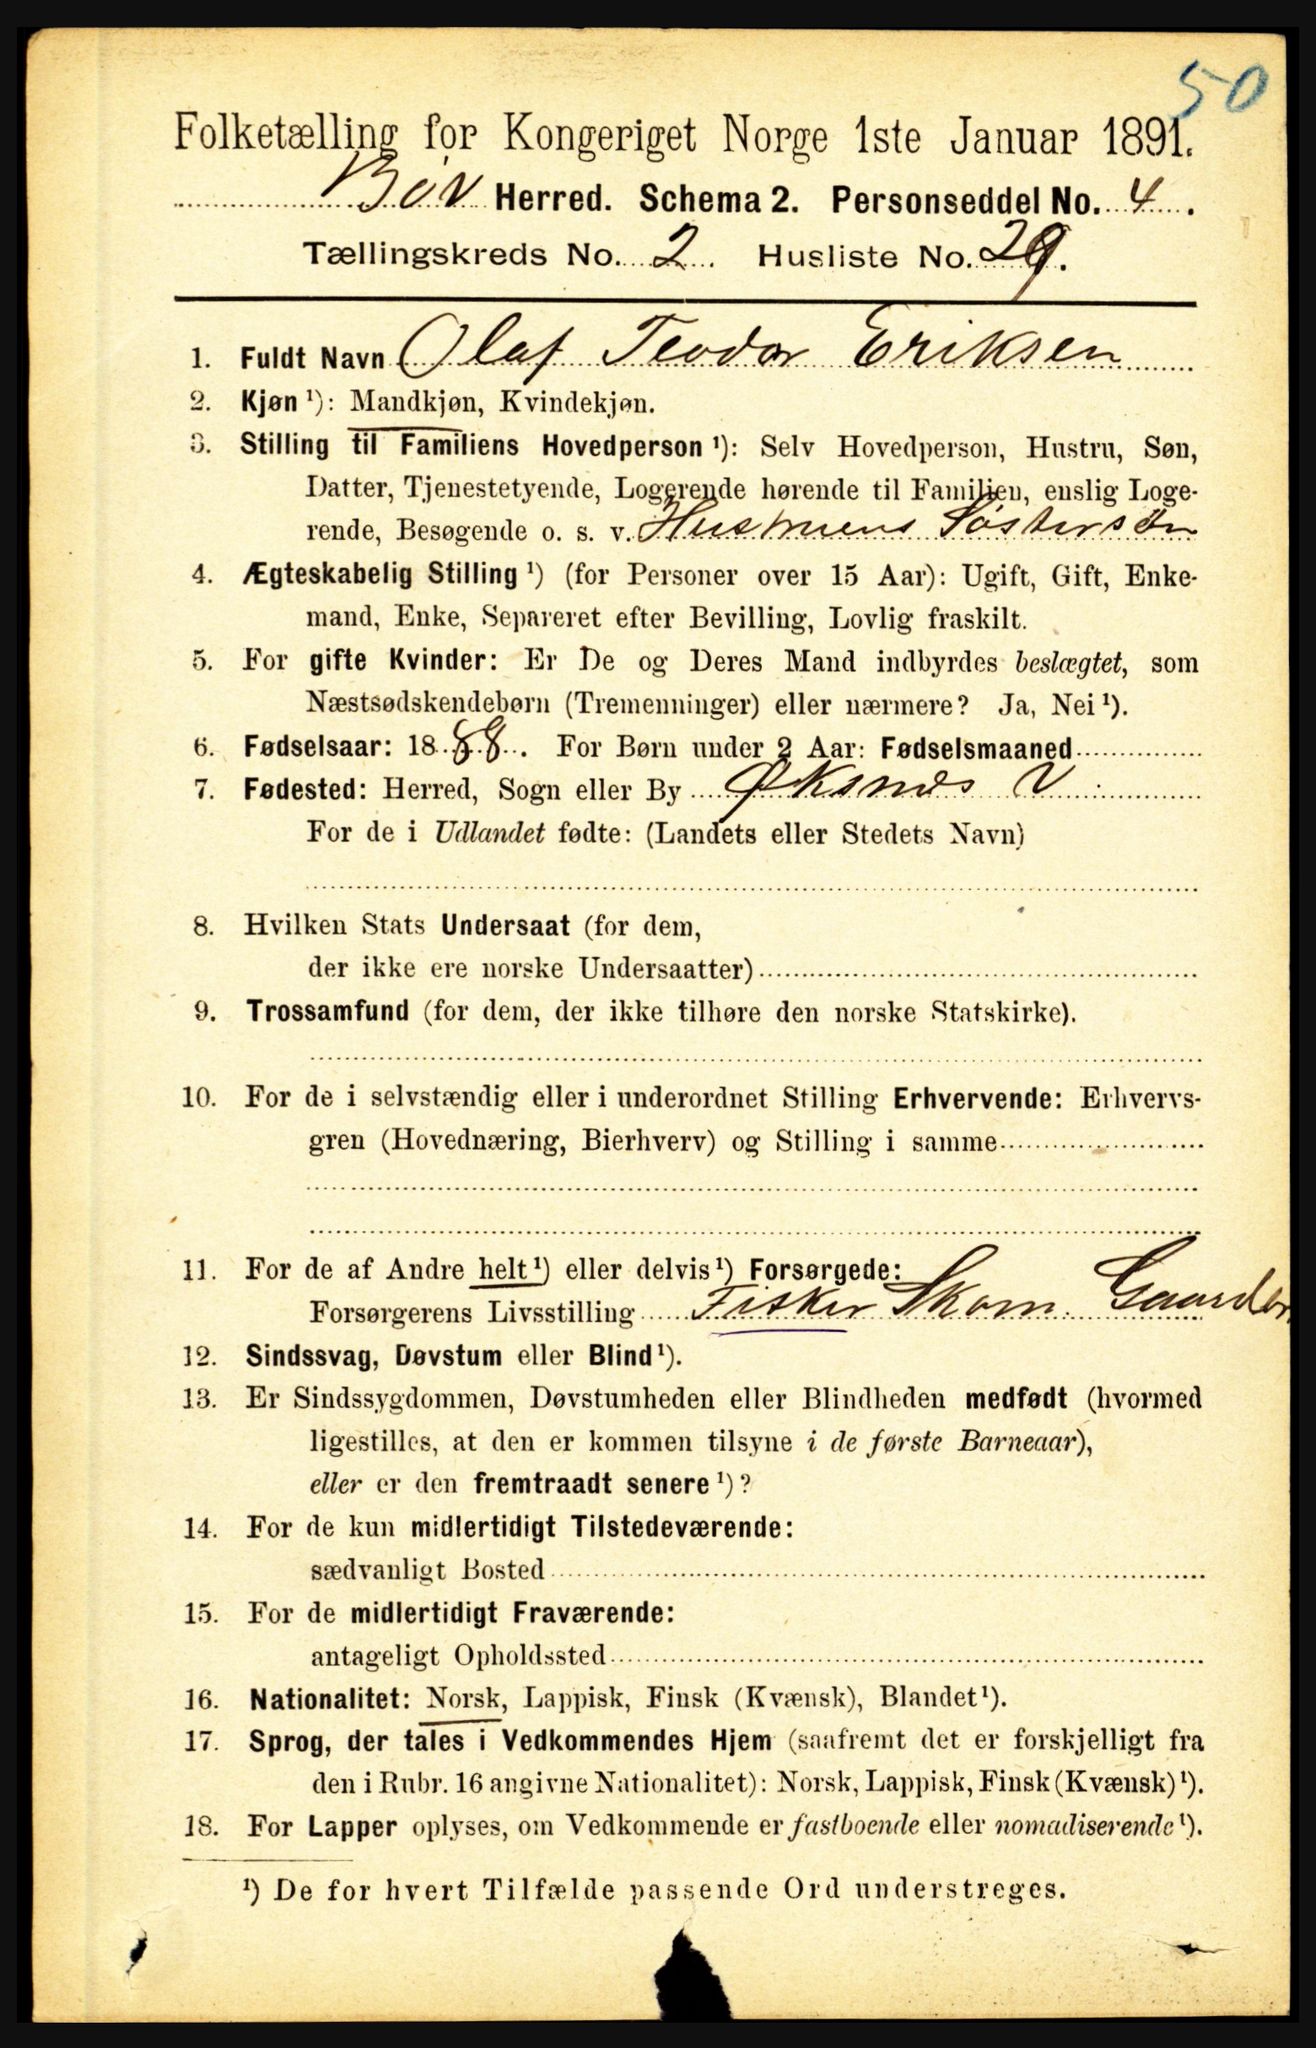 50
Folketælling for Kongeriget Norge 1ste Januar 1891.
Bøv Herred. Schema 2. Personseddel No. 4.
Tællingskreds No. 2. Husliste No. 29.
1. Fuldt Navn Olaf Teodor Eriksen
2. Kjøn ¹): Mandkjøn, Kvindekjøn.
3. Stilling til Familiens Hovedperson ¹): Selv Hovedperson, Hustru, Søn,
Datter, Tjenestetyende, Logerende hørende til Familien, enslig Loge-
rende, Besøgende o. s. v. Hustruens Søstersøn
4. Ægteskabelig Stilling ¹) (for Personer over 15 Aar): Ugift, Gift, Enke-
mand, Enke, Separeret efter Bevilling, Lovlig fraskilt.
5. For gifte Kvinder: Er De og Deres Mand indbyrdes beslægtet, som
Næstsødskendebørn (Tremenninger) eller nærmere? Ja, Nei ¹).
6. Fødselsaar: 1888. For Børn under 2 Aar: Fødselsmaaned
7. Fødested: Herred, Sogn eller By Øksnes V
For de i Udlandet fødte: (Landets eller Stedets Navn)
8. Hvilken Stats Undersaat (for dem,
der ikke ere norske Undersaatter)
9. Trossamfund (for dem, der ikke tilhøre den norske Statskirke).
10. For de i selvstændig eller i underordnet Stilling Erhvervende: Erhvervs-
gren (Hovednæring, Bierhverv) og Stilling i samme
11. For de af Andre helt ¹) eller delvis ¹) Forsørgede:
Forsørgerens Livsstilling Fisker Skom. Gaardbr
12. Sindssvag, Døvstum eller Blind ¹).
13. Er Sindssygdommen, Døvstumheden eller Blindheden medfødt (hvormed
ligestilles, at den er kommen tilsyne i de første Barneaar),
eller er den fremtraadt senere ¹)?
14. For de kun midlertidigt Tilstedeværende:
sædvanligt Bosted
15. For de midlertidigt Fraværende:
antageligt Opholdssted
16. Nationalitet: Norsk, Lappisk, Finsk (Kvænsk), Blandet ¹).
17. Sprog, der tales i Vedkommendes Hjem (saafremt det er forskjelligt fra
den i Rubr. 16 angivne Nationalitet): Norsk, Lappisk, Finsk (Kvænsk) ¹).
18. For Lapper oplyses, om Vedkommende er fastboende eller nomadiserende ¹).
¹) De for hvert Tilfælde passende Ord understreges.